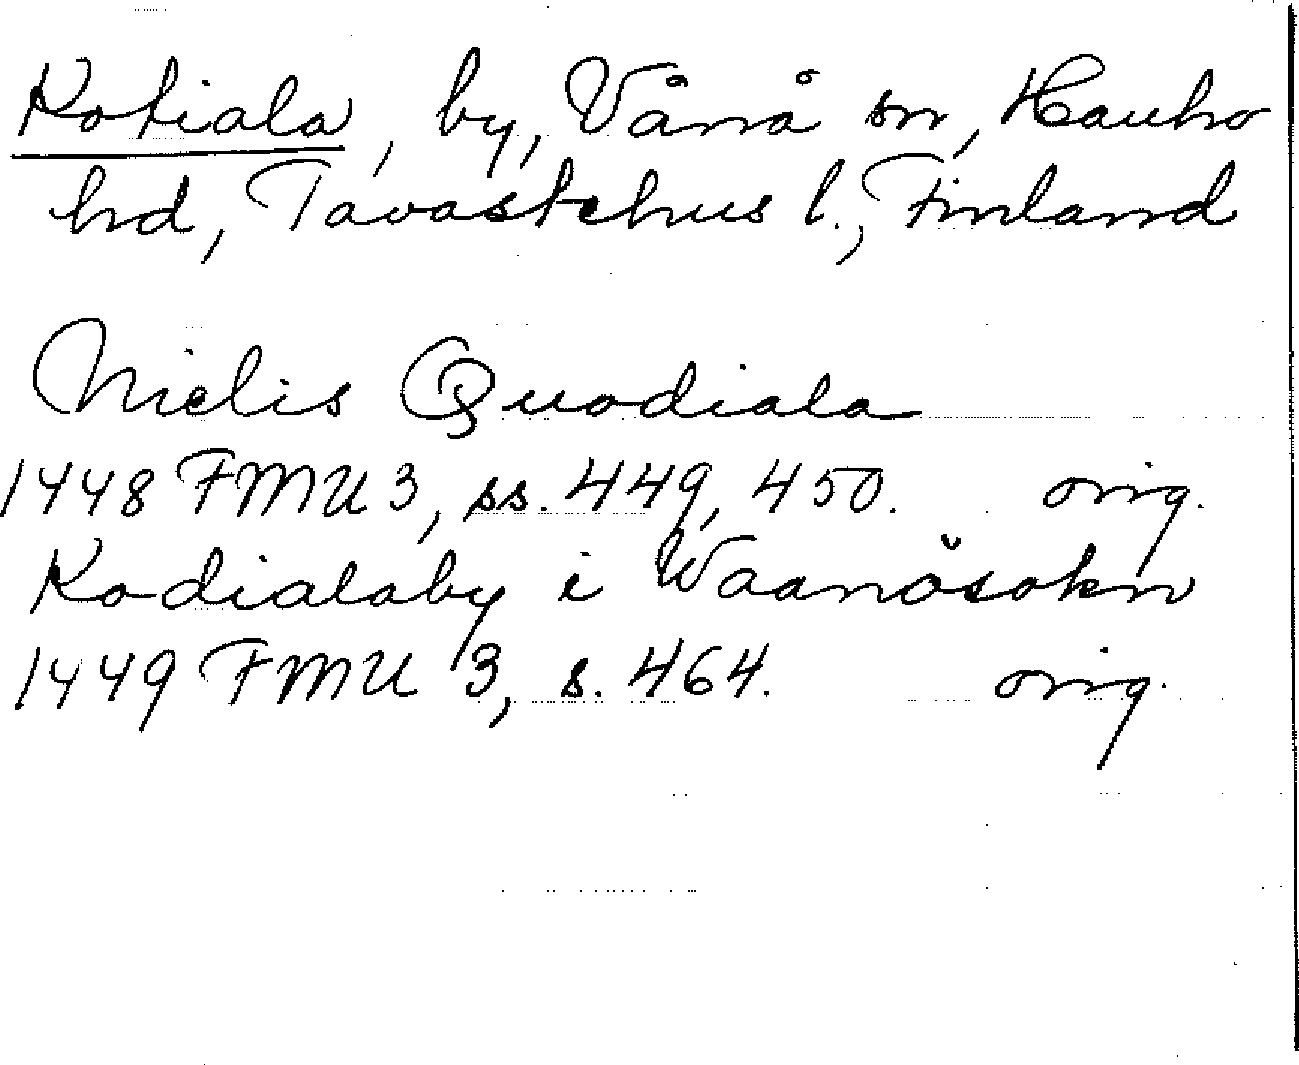 Kotiala, by, Vånå sn, Hauho
hd, Tavastehus l., Finland
Nielis Quodiala
1448 FMU 3, ss. 449, 450. orig.
Kodialaby i Waanŏsokn
1449 FMU 3, s. 464. orig.